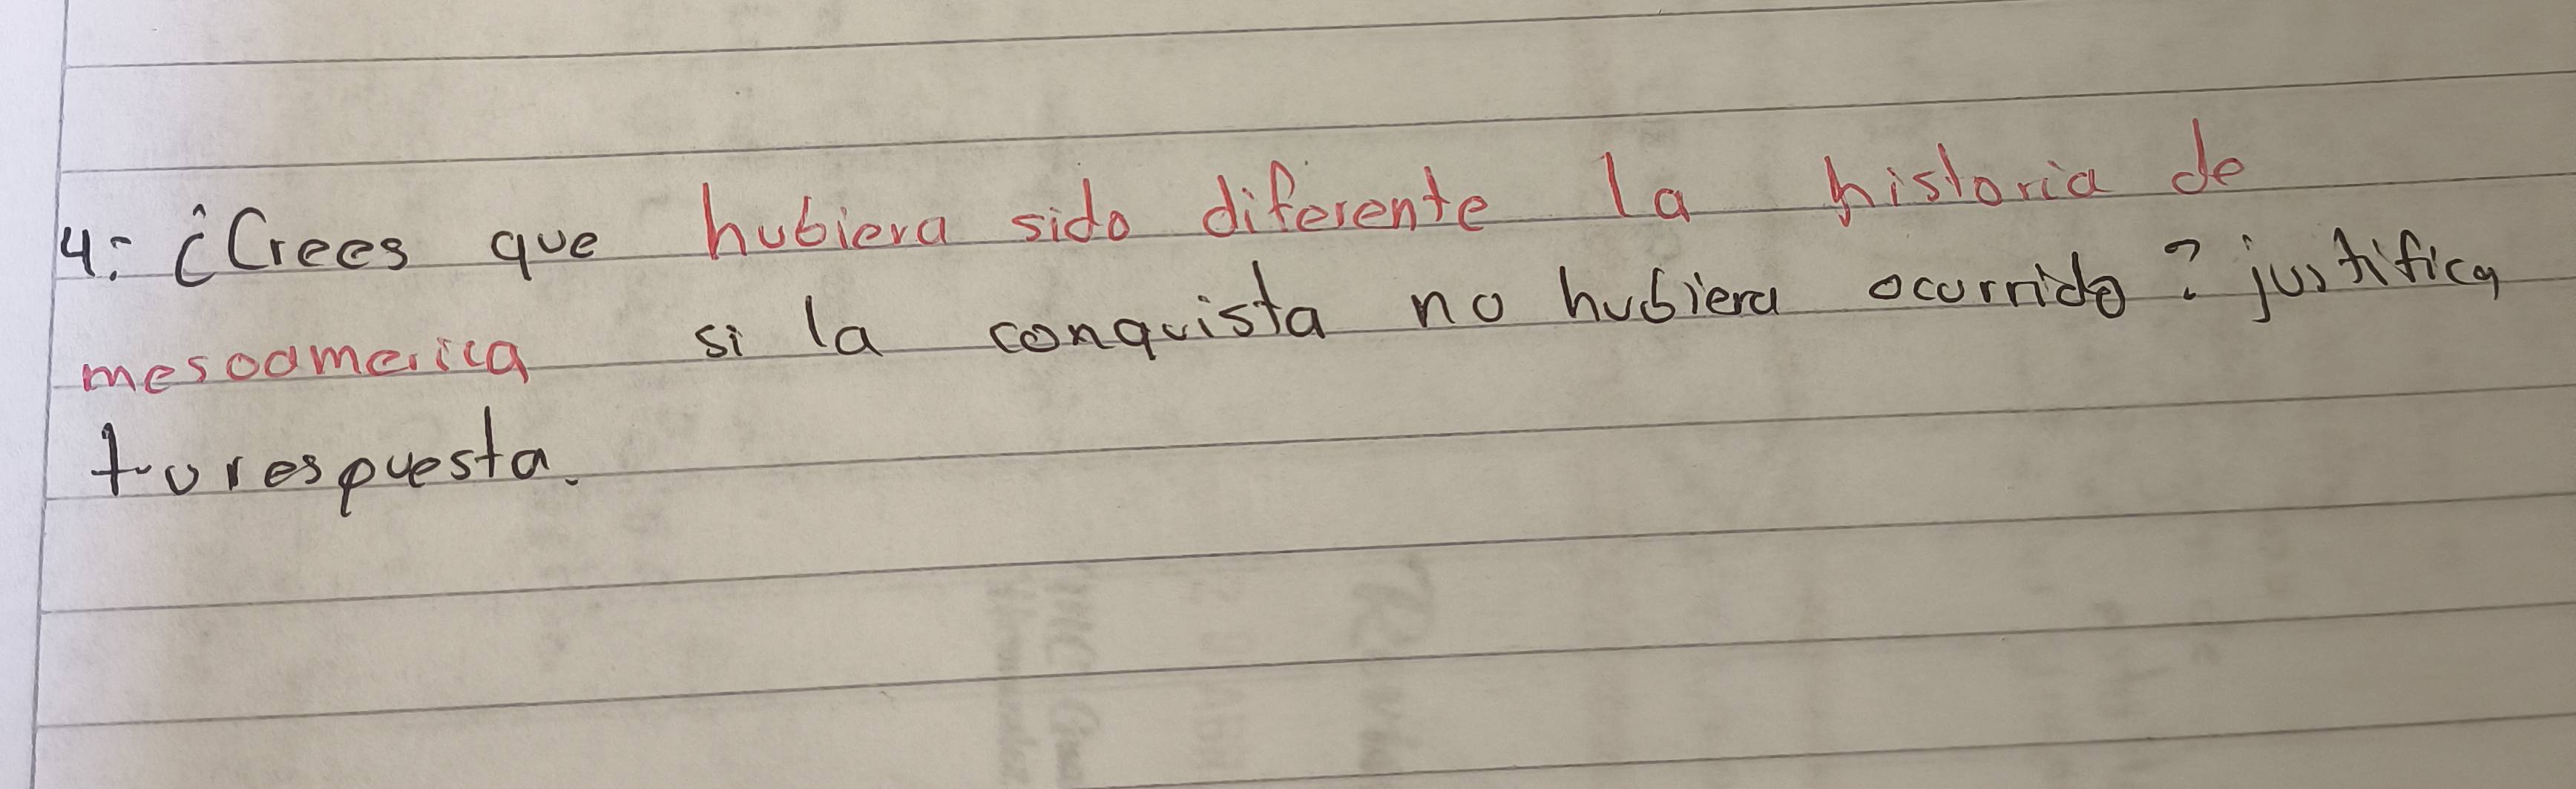 4: ¿Crees que hubiera sido diferente la historia de
mesoamerica si la conquista no hubiera ocurrido? justifica
tu respuesta.